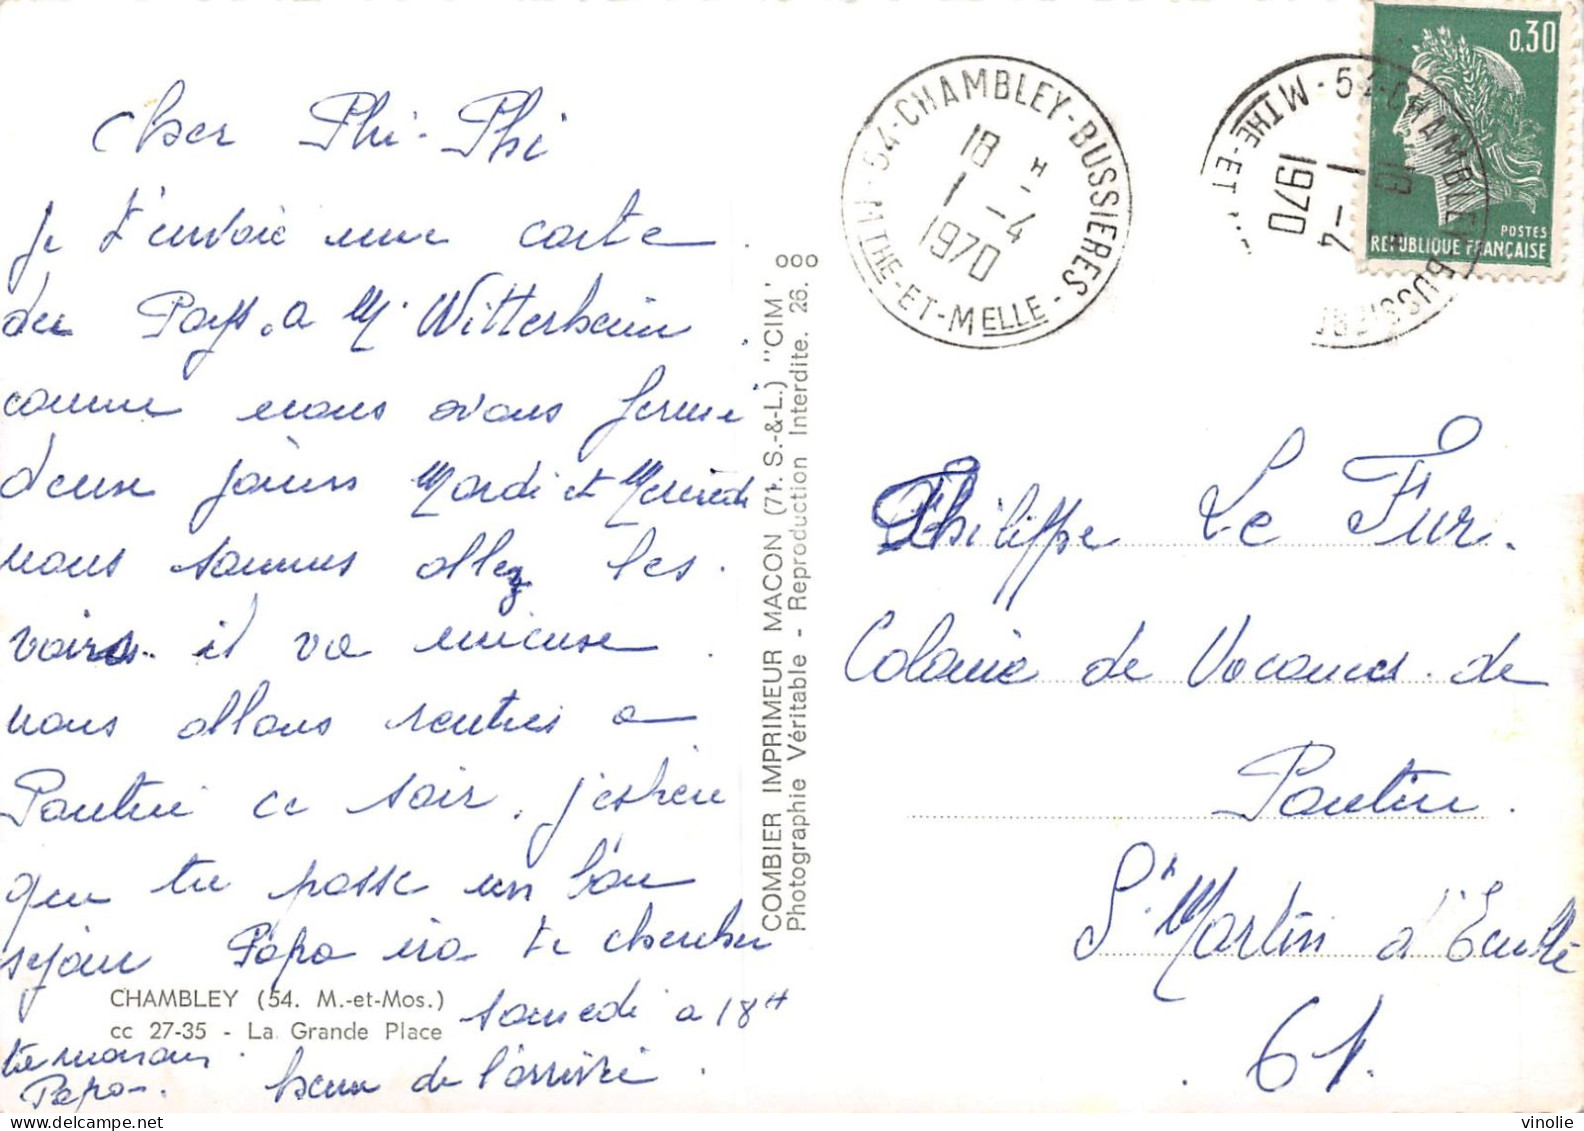 cher Phi-Phi
Je t'envoie une carte
du Pays. a Mr Witterheim
comme nous avons fermé
deux jours Mardi et Mercredi
nous sommes allez les
voirs. il va mieuse
nous allons rentres a
Pantin ce soir. j'eshère
que tu passe un bon
sejour Papa ira te chercher
samedi a 18H
heure de l'arrivée.
ta maman
Papa.
CHAMBLEY (54. M.-et-Mos.)
cc 27-35 - La Grande Place
COMBIER IMPRIMEUR MACON (71. S.-&-L.) "CIM"
Photographie Véritable - Reproduction Interdite. 26. 000
54-CHAMBLEY-BUSSIERES
18 H
1 -4
1970
MTHE-ET-MELLE
54-CHAMBLEY-BUSSIERES
18 H
1 -4
1970
MTHE-ET
0,30
POSTES
REPUBLIQUE FRANÇAISE
Philippe Le Fur.
Colonie de Vacances de
Pantin.
St Martin d'Ecublé
61.
vinolie